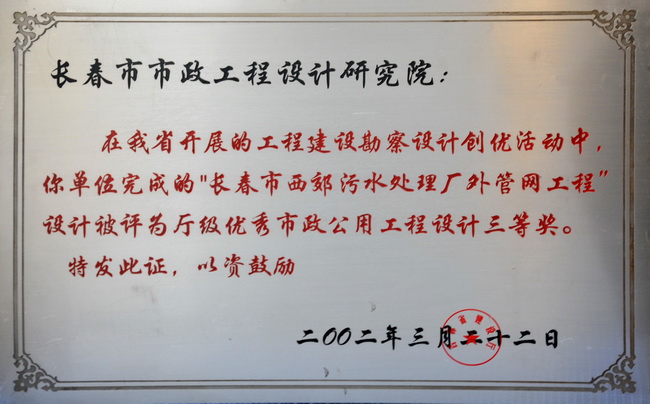 长春市市政工程设计研究院：
在我省开展的工程建设勘察设计创优活动中，
你单位完成的"长春市西郊污水处理厂外管网工程"
设计被评为厅级优秀市政公用工程设计三等奖。
特发此证，以资鼓励
二〇〇二年三月二十二日